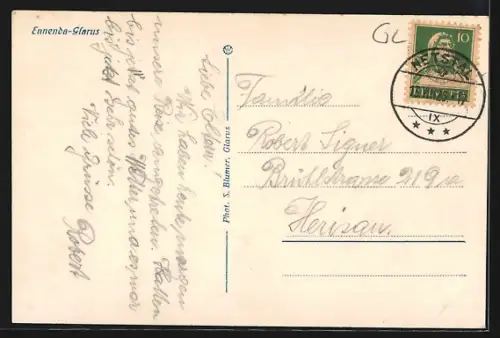 Ennenda-Glarus
Liebe Eltern!
Wir haben heute morgen
unsere Reise angetreten. Hatten
bis jetzt gutes Wetter und es war
bis jetzt sehr schön.
Viele Grüsse
Robert
Phot. S. Blumer, Glarus
GL
10
HELVETIA
NETSTAL
IX
Familie
Robert Signer
Brühlstrasse 219a
Herisau.